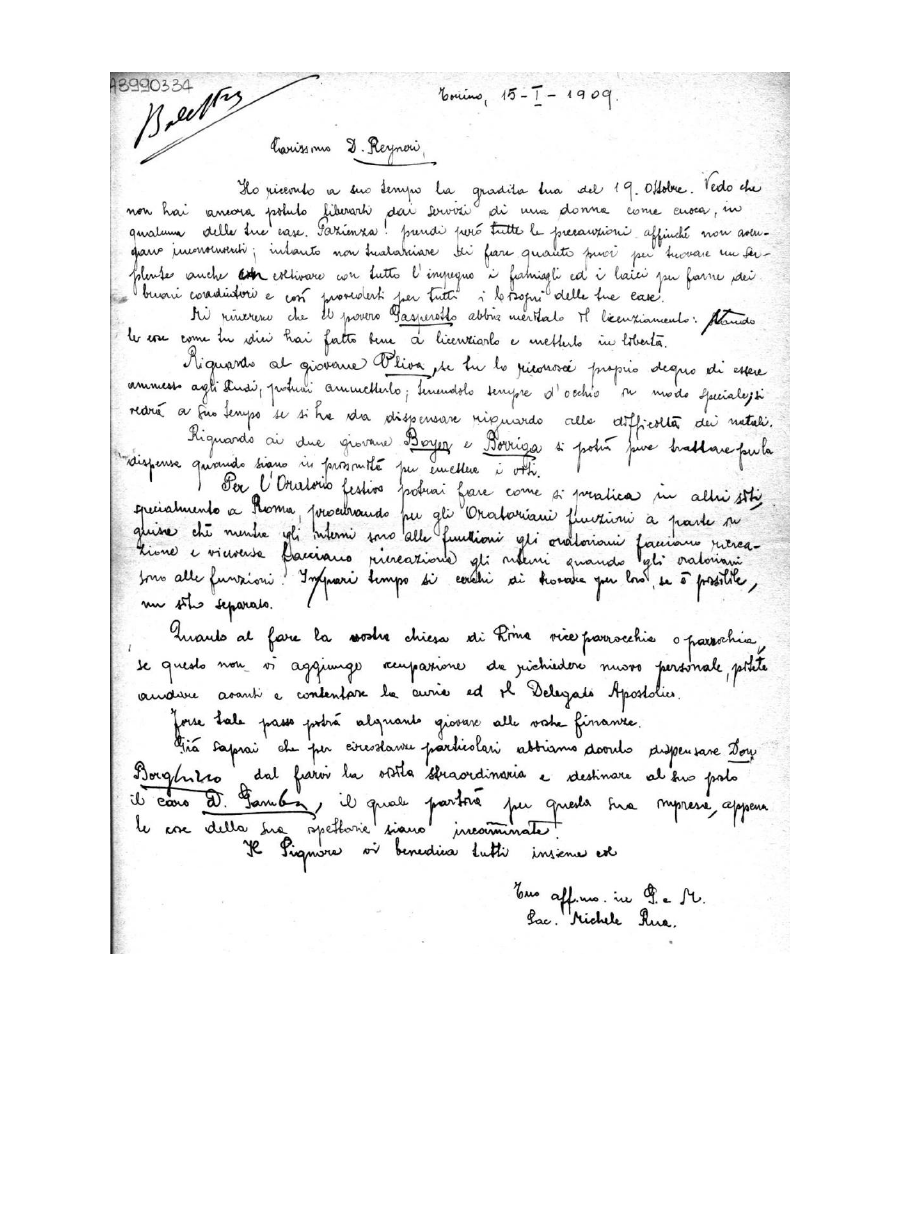 A8990334
Torino, 15-I-1909.
Carissimo D. Reyneri,
Ho ricevuto a suo tempo la gradita tua del 19. Ottobre. Vedo che
non hai ancora potuto liberarti dai servizi di una donna come cuoca, in
qualcuna delle tue case. Pazienza! prendi però tutte le precauzioni affinché non avven-
gano inconvenienti; intanto non tralasciare di fare quanto puoi per trovare un sup-
plente anche coltivare con tutto l'impegno i famigli ed i laici per farne dei
buoni coadiutori e così provvederti per tutti i bisogni delle tue case.
Mi rincresce che il povero Gasparotto abbia meritato il licenziamento: stando
le cose come tu dici hai fatto bene a licenziarlo e metterlo in libertà.
Riguardo al giovane Oliva, se tu lo riconosci proprio degno di essere
ammesso agli studi, potrai ammetterlo; tenendolo sempre d'occhio in modo speciale; si
vedrà a suo tempo se si ha da dispensare riguardo alla difficoltà dei natali.
Riguardo ai due giovani Boyer e Borriga si potrà pure trattare per la
dispensa quando siano in prossimità per emettere i voti.
Per l'Oratorio festivo potrai fare come si pratica in altri siti,
specialmente a Roma, procurando per gli Oratoriani funzioni a parte in
guisa chè mentre gli interni sono alle funzioni gli oratoriani facciano ricrea-
zione e viceversa facciano ricreazione gli interni quando gli oratoriani
sono alle funzioni. In pari tempo si cerchi di trovare per loro, se è possibile,
un sito separato.
Quanto al fare la vostra chiesa di vice parrocchia o parrocchia,
se questo non vi aggiunge occupazione da richiedere nuovo personale, potete
andare avanti e contentare la curia ed il Delegato Apostolico.
Forse tale passo potrà alquanto giovare alle vostre finanze.
Già saprai che per circostanze particolari abbiamo dovuto dispensare Don
Borghino dal farvi la visita straordinaria e destinare al suo posto
il caro D. Gamba, il quale partirà per questa sua impresa, appena
le cose della sua ispettoria siano incamminate.
Il Signore vi benedica tutti insieme col
Tuo aff.mo. in G. e M.
Sac. Michele Rua.